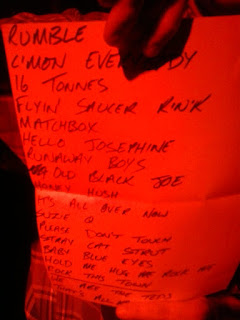 RUMBLE
C'MON EVERYBODY
16 TONNES
FLYIN SAUCER R'N'R
MATCHBOX
HELLO JOSEPHINE
RUNAWAY BOYS
OLD BLACK JOE
HONEY HUSH
IT'S ALL OVER NOW
SUZIE Q
PLEASE DON'T TOUCH
STRAY CAT STRUT
BABY BLUE EYES
HOLD ME HUG ME ROCK ME
ROCK THIS TOWN
WE ARE THE TEDS